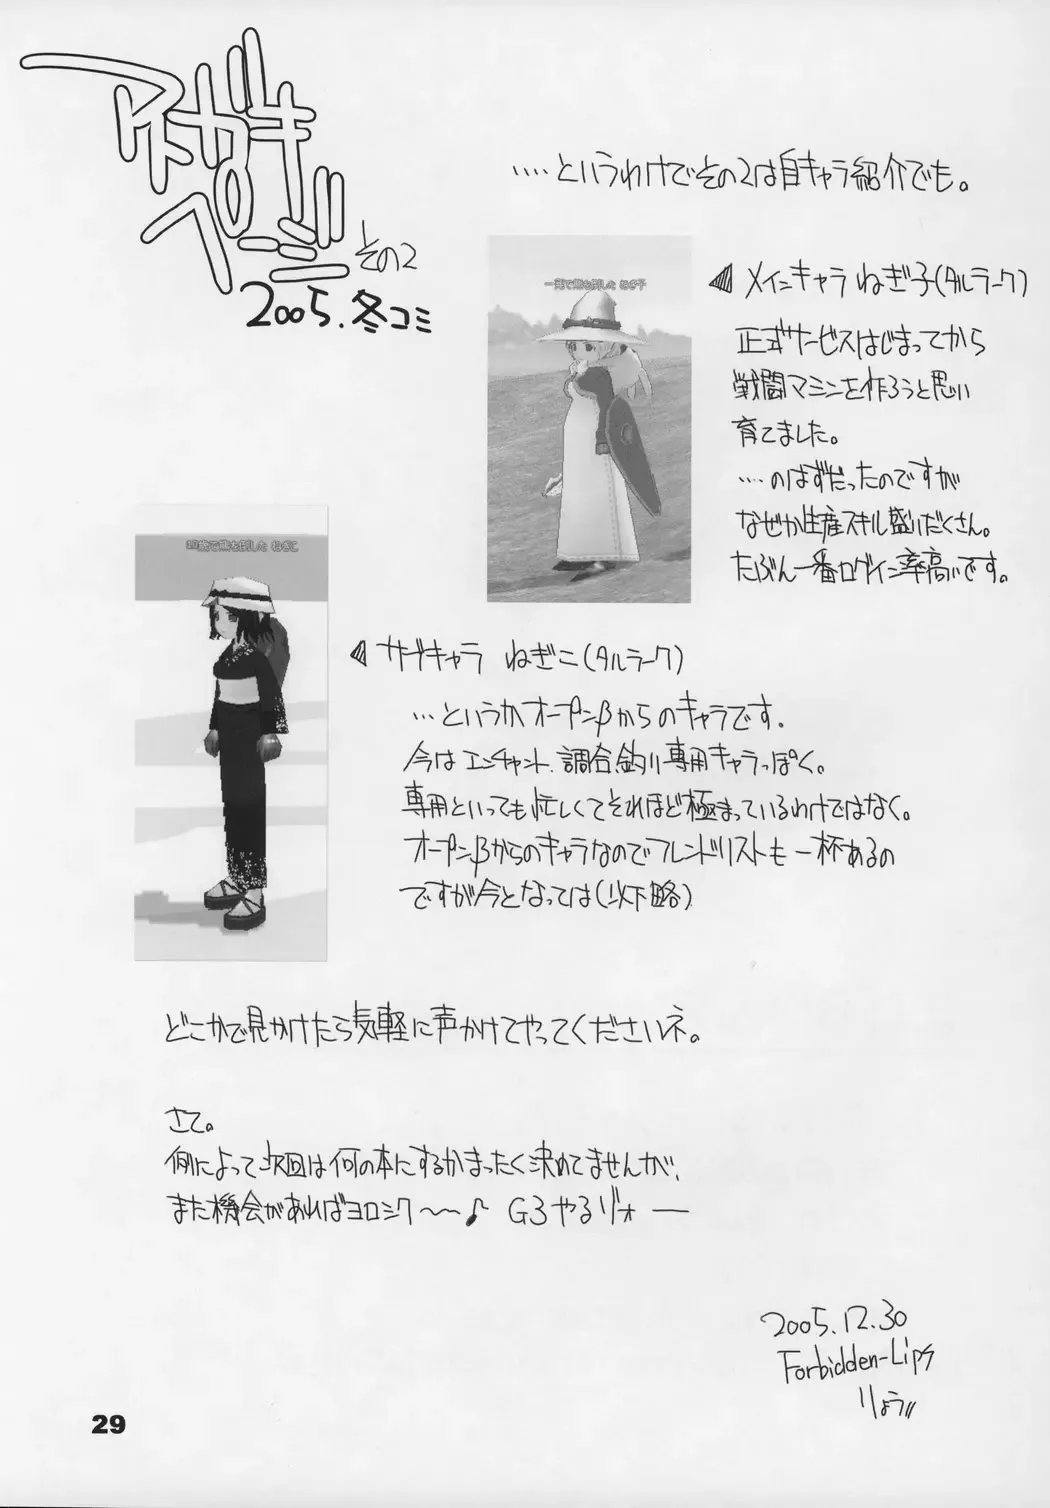 アトガキ
ページ その2
2005.冬コミ
....というわけでその2は自キャラ紹介でも。
一薙で熊を倒した ねぎ子
メインキャラ ねぎ子(タルラーク)
正式サービスはじまってから
戦闘マシンを作ろうと思い
育てました。
....のはずだったのですが
なぜか生産スキル盛りだくさん。
たぶん一番ログイン率高いです。
歳で熊を倒した ねぎこ
サブキャラ ねぎこ(タルラーク)
...というかオープンβからのキャラです.
今はエンチャント、調合、釣り専用キャラっぽく。
専用といっても忙しくてそれほど極まっているわけではなく。
オープンβからのキャラなのでフレンドリストも一杯あるの
ですが今となっては(以下略)
どこかで見かけたら気軽に声かけてやってくださいネ。
さて。
例によって次回は何の本にするかまったく決めてませんが、
また機会があればヨロシク〜〜♪ G3やるゾォー
2005.12.30
Forbidden-Lips
りょう
29